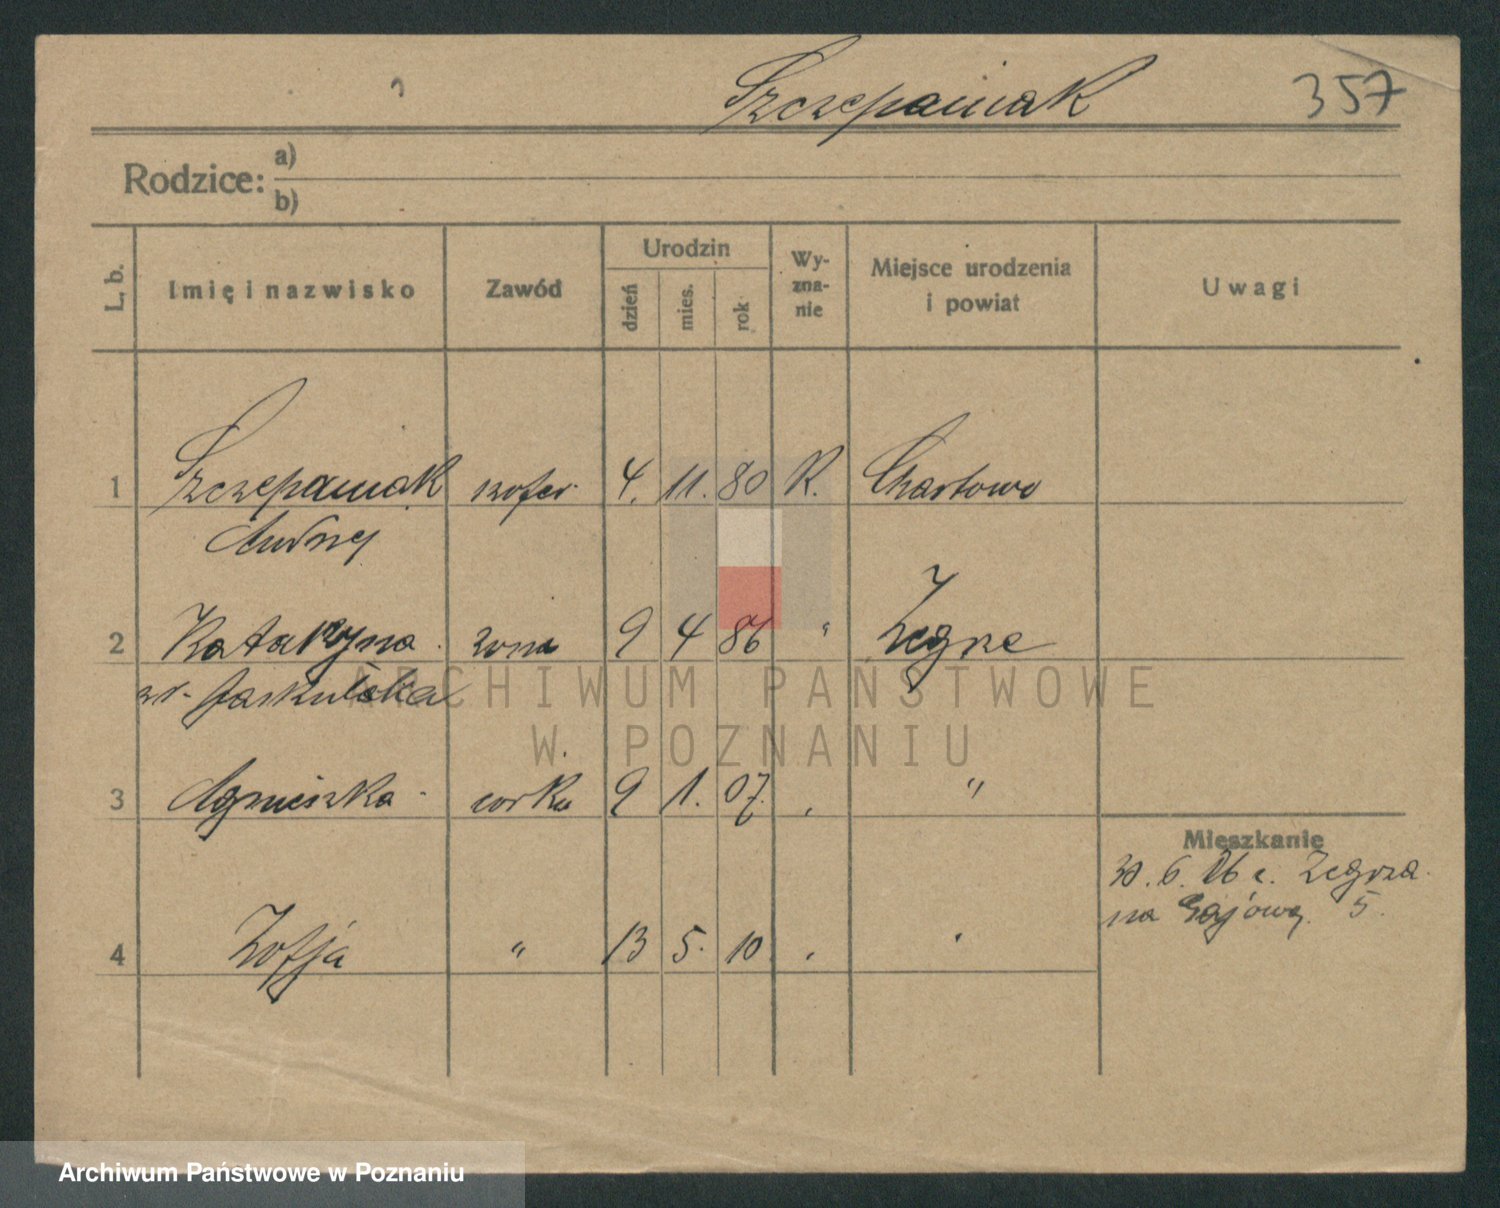 Szczepaniak 357
Rodzice: a)
b)
L. b. Imię i nazwisko Zawód Urodzin dzień mies. rok Wy-zna-nie Miejsce urodzenia i powiat Uwagi
1 Szczepaniak szofer 4. 11. 80 K. Chartowo
Andrzej
2 Katarzyna żona 9 4 86 " Zegrze
ur. Jaskulska
3 Agnieszka córka 9 1. 07. " "
Mieszkanie
30. 6. 26 r. Zegrza
na Gajową 5.
4 Zofja " 13 5. 10. " "
ARCHIWUM PAŃSTWOWE
W POZNANIU
Archiwum Państwowe w Poznaniu